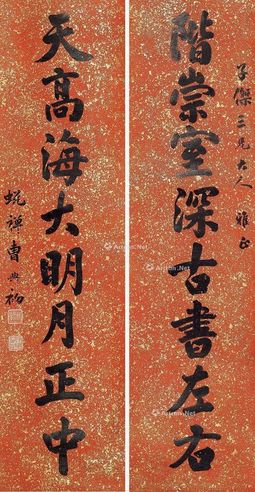 子傑三兄大人 雅正
階崇室深古書左右
天高海大明月正中
蜕禅曹典初